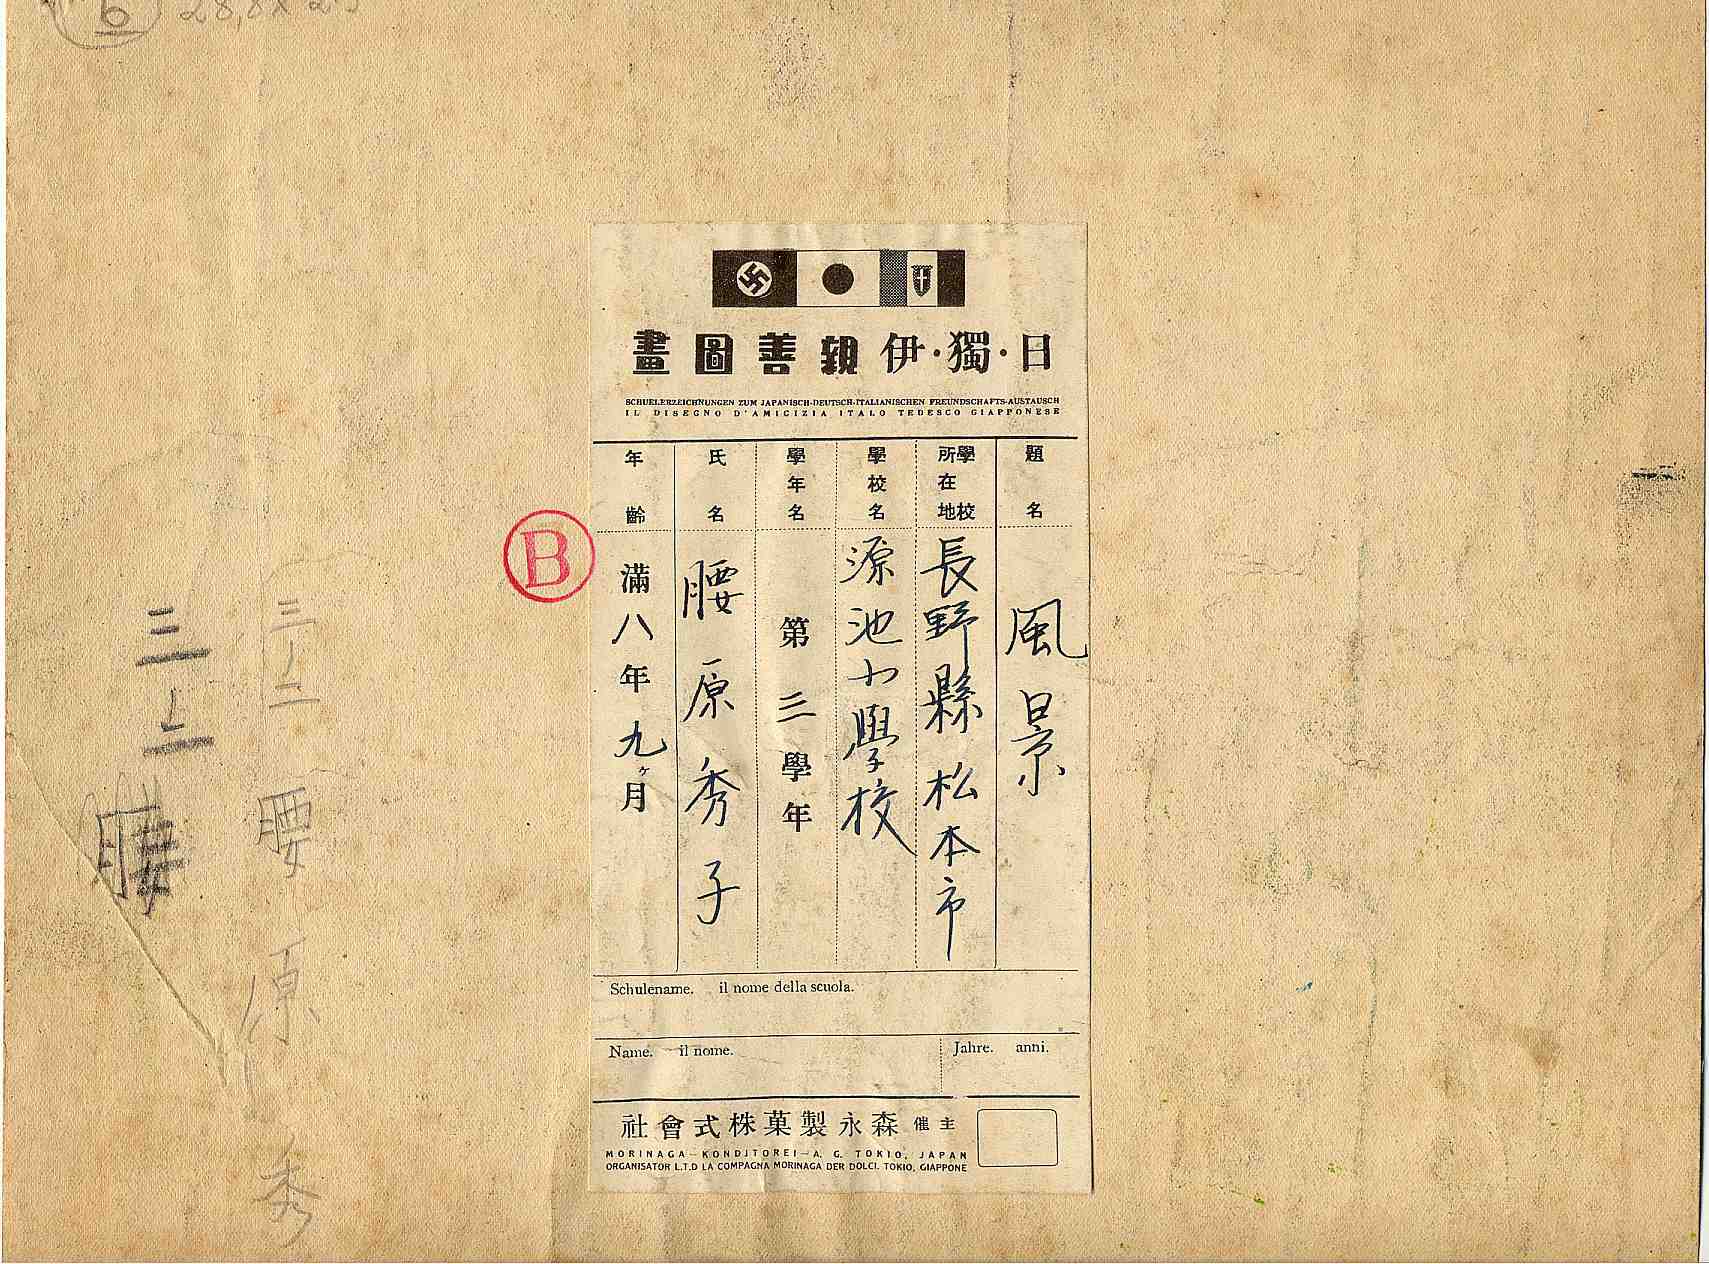 6 28,8x2
日・獨・伊親善圖畫
SCHUELERZEICHNUNGEN ZUM JAPANISCH-DEUTSCH-ITALIANISCHEN FREUNDSCHAFTS-AUSTAUSCH
IL DISEGNO D'AMICIZIA ITALO TEDESCO GIAPPONESE
題名
風景
學校所在地
長野縣松本市
學校名
源池小學校
學年名
第三學年
氏名
腰原秀子
年齡
滿八年九ヶ月
B
三ノ二 腰原秀
三ノ二
腰
Schulename. il nome della scuola.
Name. il nome.
Jahre. anni.
主催 森永製菓株式會社
MORINAGA-KONDITOREI-A. G. TOKIO, JAPAN
ORGANISATOR L.T.D LA COMPAGNA MORINAGA DER DOLCI. TOKIO, GIAPPONE